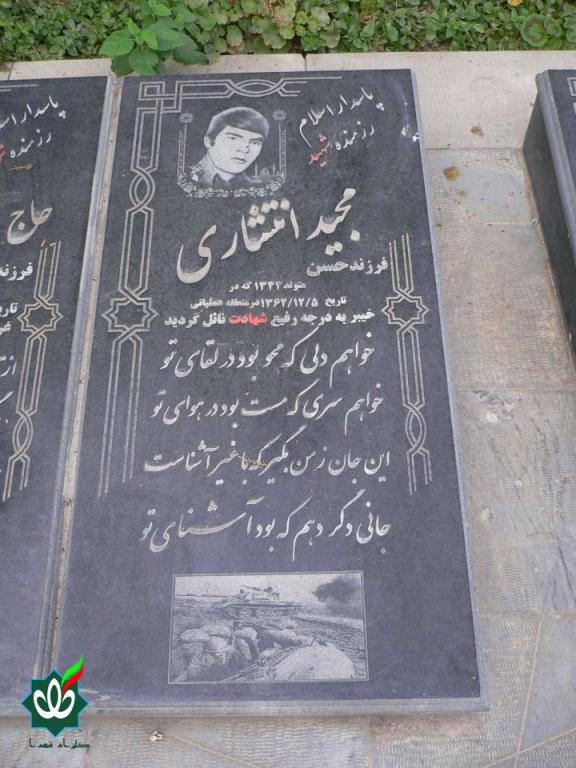 پاسدار اسلام
رزمنده شهید
مجید انتشاری
فرزند حسن
متولد ۱۳۴۳ که در
تاریخ ۱۳۶۲/۱۲/۵ در منطقه عملیاتی
خیبر به درجه رفیع شهادت نائل گردید
خواهم دلی که محو بود در لقای تو
خواهم سری که مست بود در هوای تو
این جان ز من بگیر که با غیر آشناست
جانی دگر دهم که بود آشنای تو
پاسدار اسلام
رزمنده
حاج
فرزند
تاریخ
گلزار شهدا